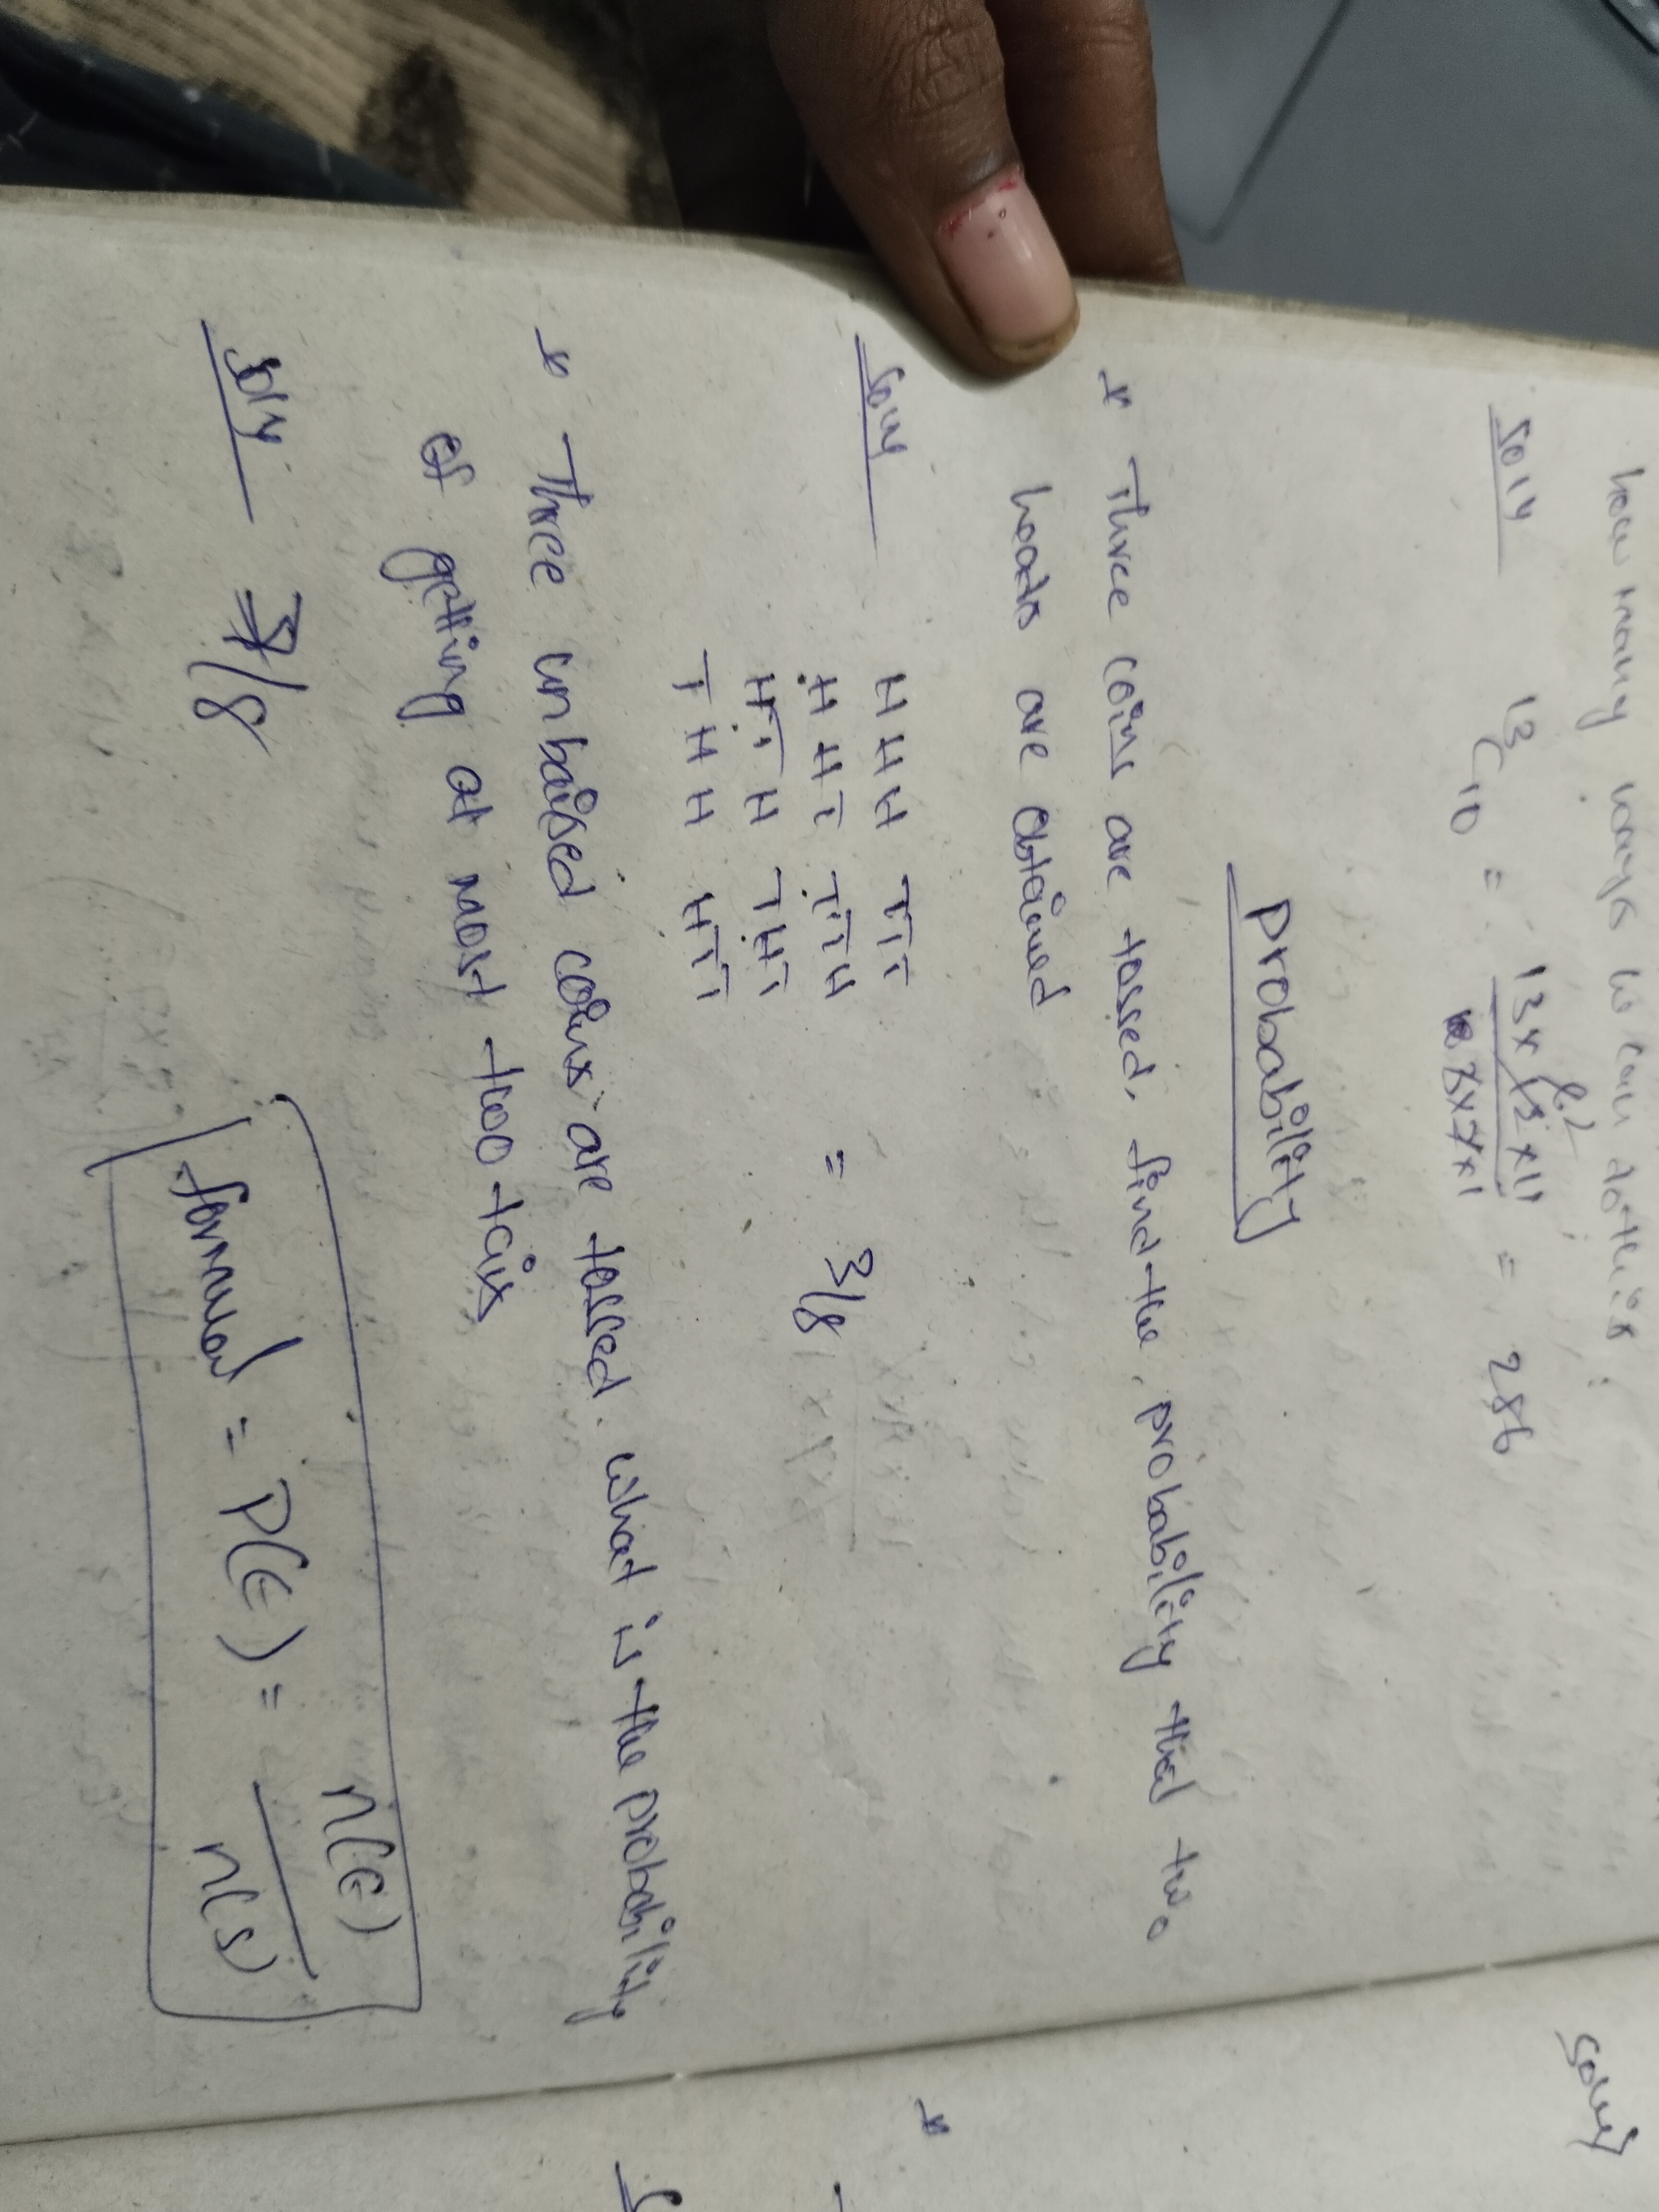 how many ways to can do this.
Soln
13C10 = 13x12x11 / 3x2x1 = 286
Probability
* Three coins are tossed. find the probability that two
heads are obtained
Soln
H H H T T T
H H T T T H
H T H T H T = 3/8
T H H H T T
* Three unbaised coins are tossed. what is the probability
of getting at most two tails
Soln 7/8
formul = P(E) = n(E) / n(s)
Soln
*